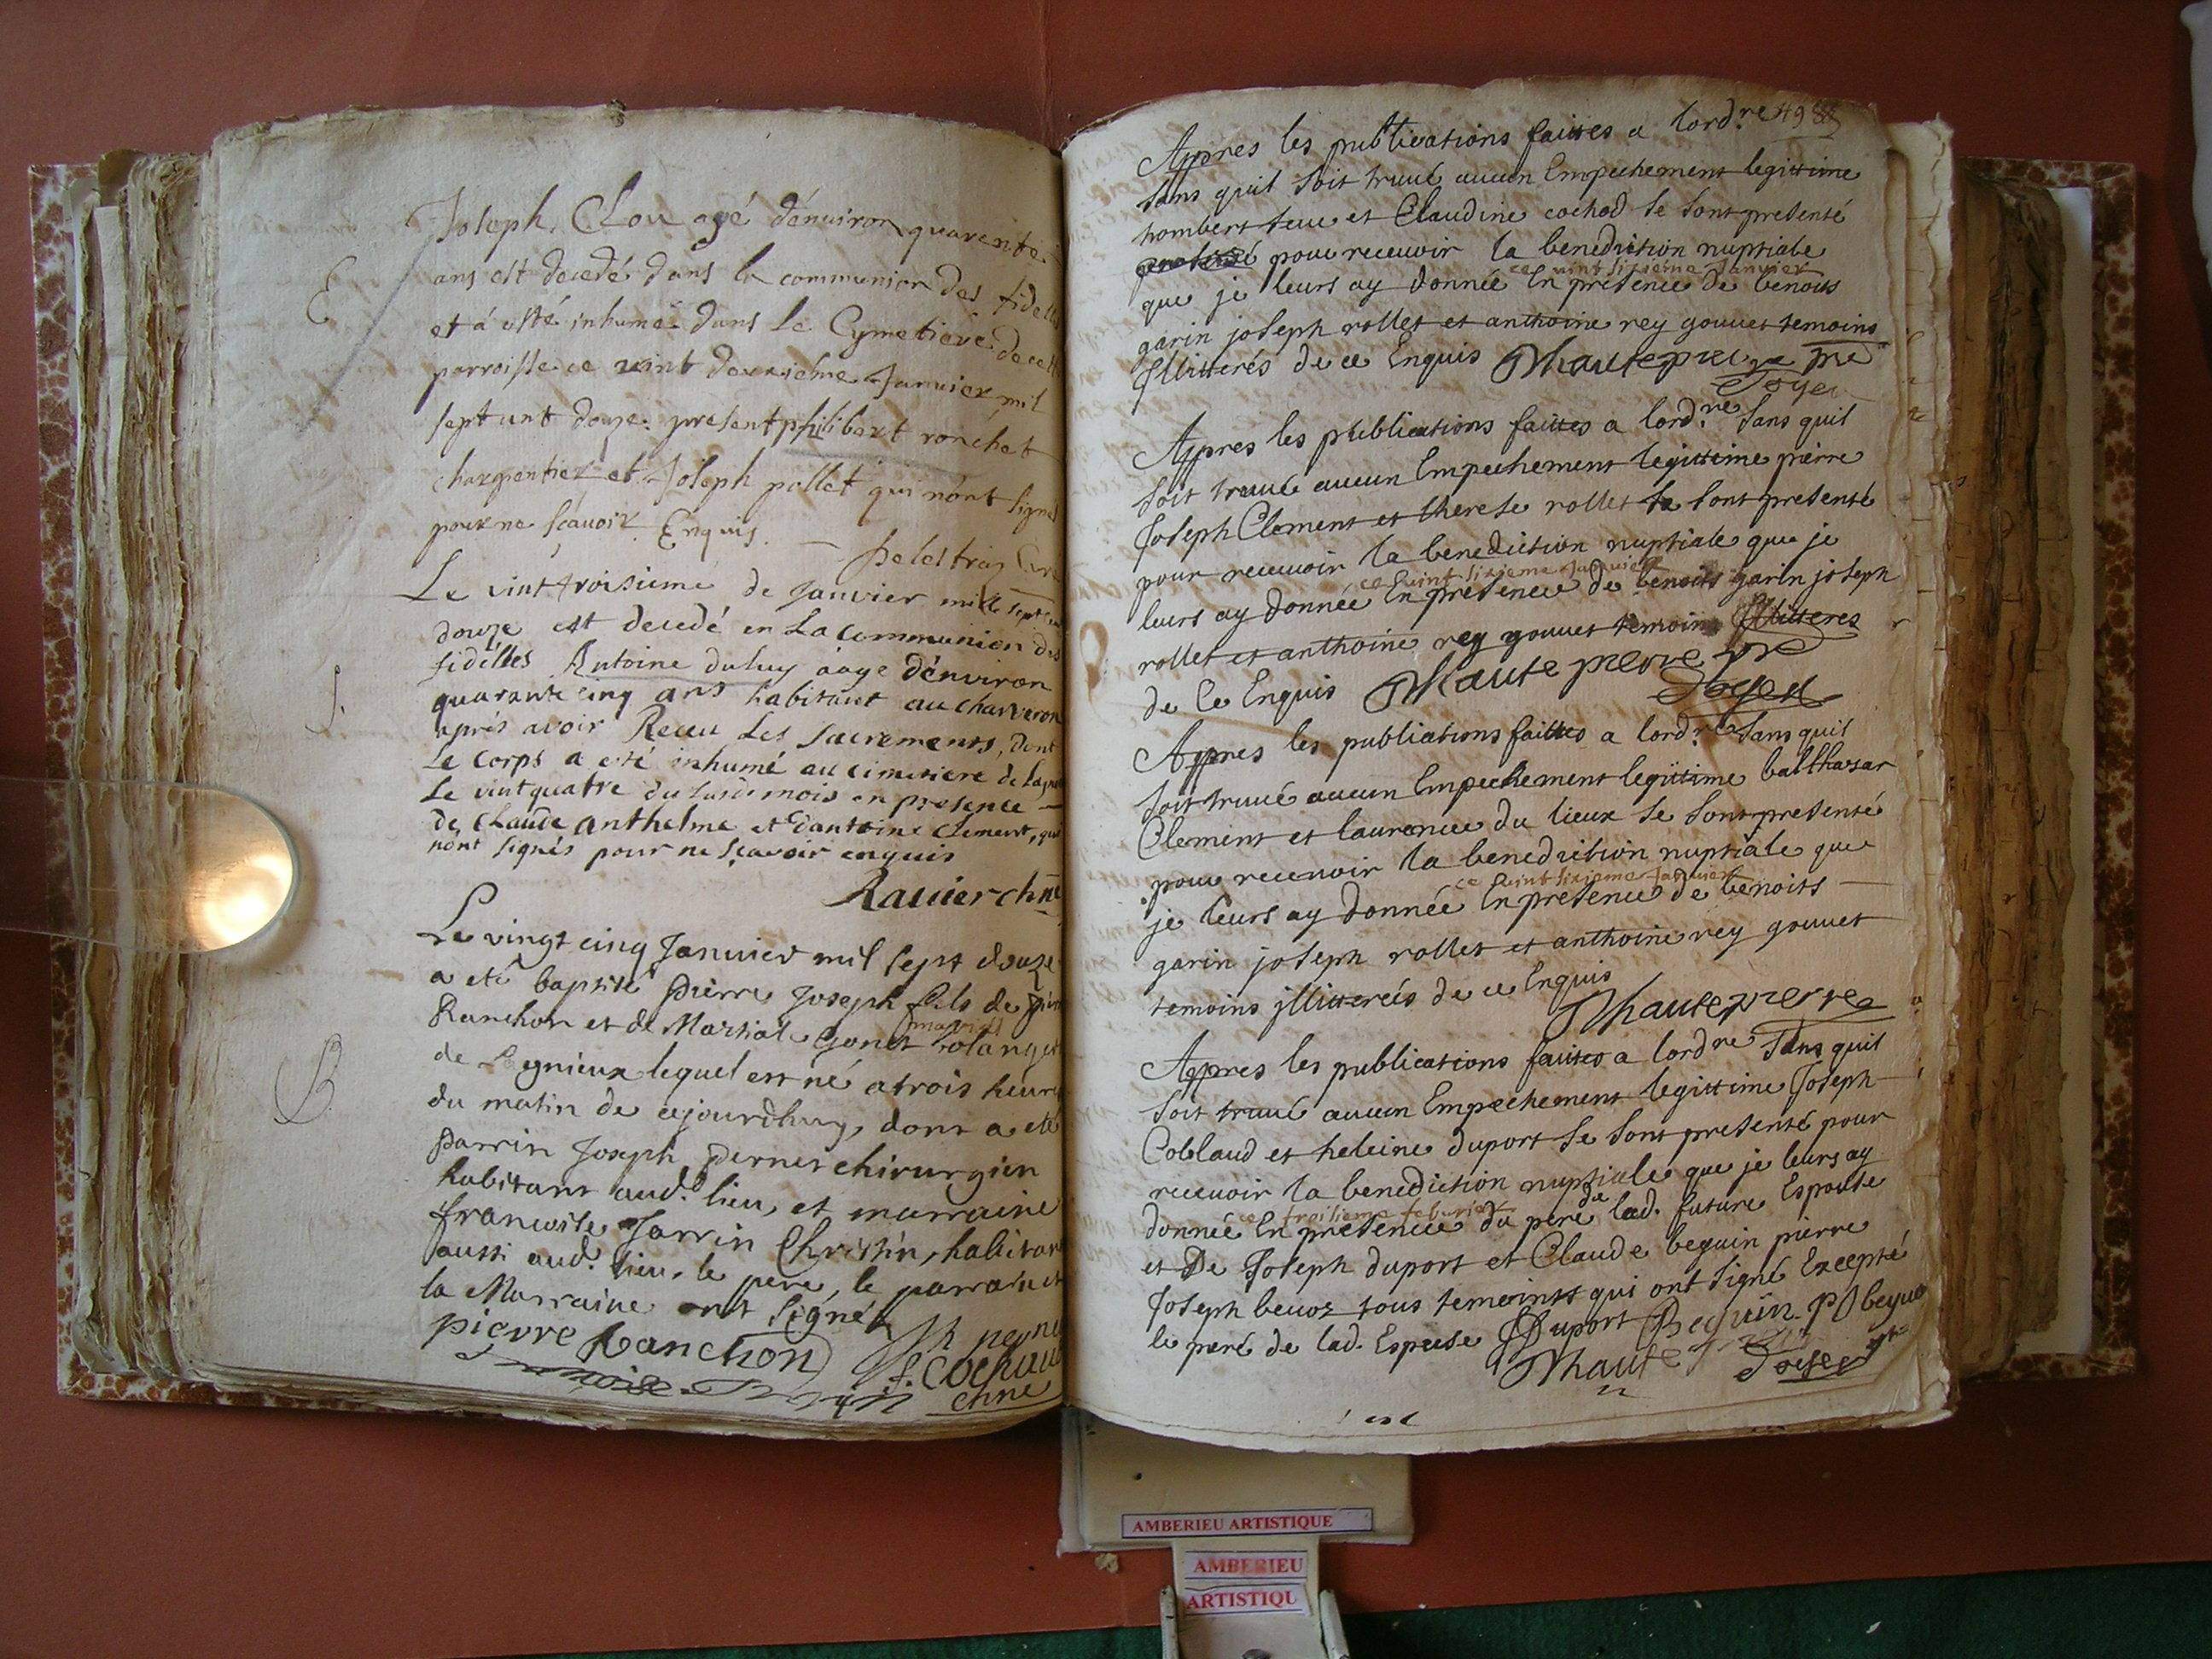 E
Joseph Clou agé d'enuiron quarente
ans est decedé dans la communion des fidelles
et á esté inhumé dans Le Cymetiere de cette
parroisse ce vint deuxiéme Januier mil
sept cent douze. present philibert ronchet
charpentier et Joseph pollet qui n'ont signé
pour ne sçauoir Enquis.
Le vint troisieme de Janvier mille sept cen
douze est decedé en La Communion des
fidélles Antoine duluy áage d'environ
quarante cinq ans habitant au charveron
aprés avoir Receu Les Sacrements, dont
Le Corps a esté inhumé au cimetiere de Lagnieu
Le vintquatre du susdit mois en presence
de Claude Anthelme et d'antoine Clement, qui
n'ont signés pour ne sçavoir enquis
Rauier chne
B
Le vingt cinq Januier mil sept douze
a eté baptisé Pierre Joseph fils de
Ranchon et de Martial Gonet
de Lagnieux lequel est né a trois heures
du matin de cejourdhuy, dont a eté
Parrin Joseph Pernet chirurgien
habitant aud. lieu, et marraine
francoise Jarrin Christin, habitant
aussi aud. lieu, le pere, le parrain et
la Marraine ont signéz
pierre Ranchon
chne
49
Appres les publications faittes a lord.re
Sans quil soit truué aucun Empechement legittime
et Claudine cochod se sont presenté
pour receuoir la benediction nuptiale
ce vint sixieme Januier
que je leurs ay donnée En presence de benoits
garin joseph rollet et anthoine rey gouuet temoins
Jllitterés de ce Enquis Thautepierre
Appres les publications faittes a lord.re Sans quil
soit truué aucun Empechement legittime pierre
Joseph Clement et therese rollet se sont presenté
pour receuoir la benediction nuptiale que je
ce vint sixieme Januier
leurs ay donnée En presence de benoits garin joseph
rollet et anthoine rey gouuet temoins Jllitteres
de ce Enquis Thautepierre
Appres les publications faittes a lord.re Sans quil
soit truué aucun Empechement legittime balthasar
Clement et laurence du lieux se sont presenté
pour receuoir la benediction nuptiale que
ce vint sixieme Januier
je leurs ay donnée En presence de benoits
garin joseph rollet et anthoine rey gouuet
temoins jllitterés de ce Enquis
Thautepierre
Appres les publications faittes a lord.re Sans quil
soit truué aucun Empechement legittime Joseph
Coblaud et heleine duport se sont presenté pour
receuoir la benediction nuptiale que je leurs ay
ce troisieme feburier
donnée En presence du pere de lad. future Espouse
et De Joseph duport et Claude beguin pierre
Joseph beuoz tous temoins qui ont signé Excepté
le pere de lad. Espouse JDuport Beguin
AMBERIEU ARTISTIQUE
AMBERIEU
ARTISTIQU